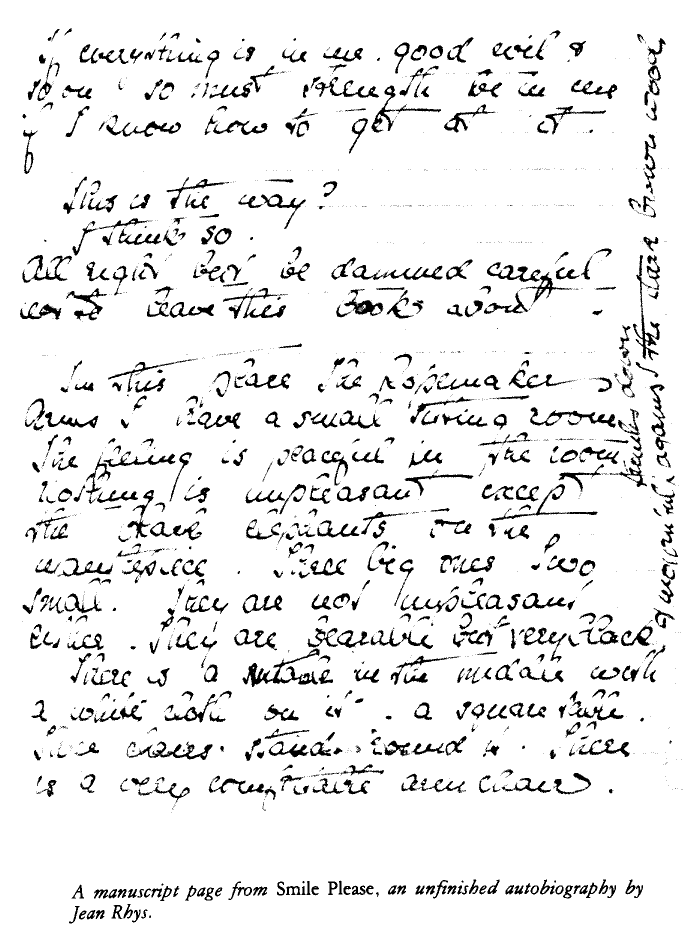 If everything is in me. good evil &
so on so must strength be in me
if I know how to get at it.
This is the way?
I think so.
All right but be damned careful
not to leave this book about.
In this place The Ropemaker
Arms I have a small sitting room.
The feeling is peaceful in the room
Nothing is unpleasant except
the black elephants on the
mantlepiece. Three big ones two
small. They are not unpleasant
either. They are bearable but very black
& mournful. against the dark brown wood
trunks down
There is a table in the middle with
a white cloth on it. a square table.
Three chairs stand round it. There
is a very comfortable armchair.
A manuscript page from Smile Please, an unfinished autobiography by
Jean Rhys.